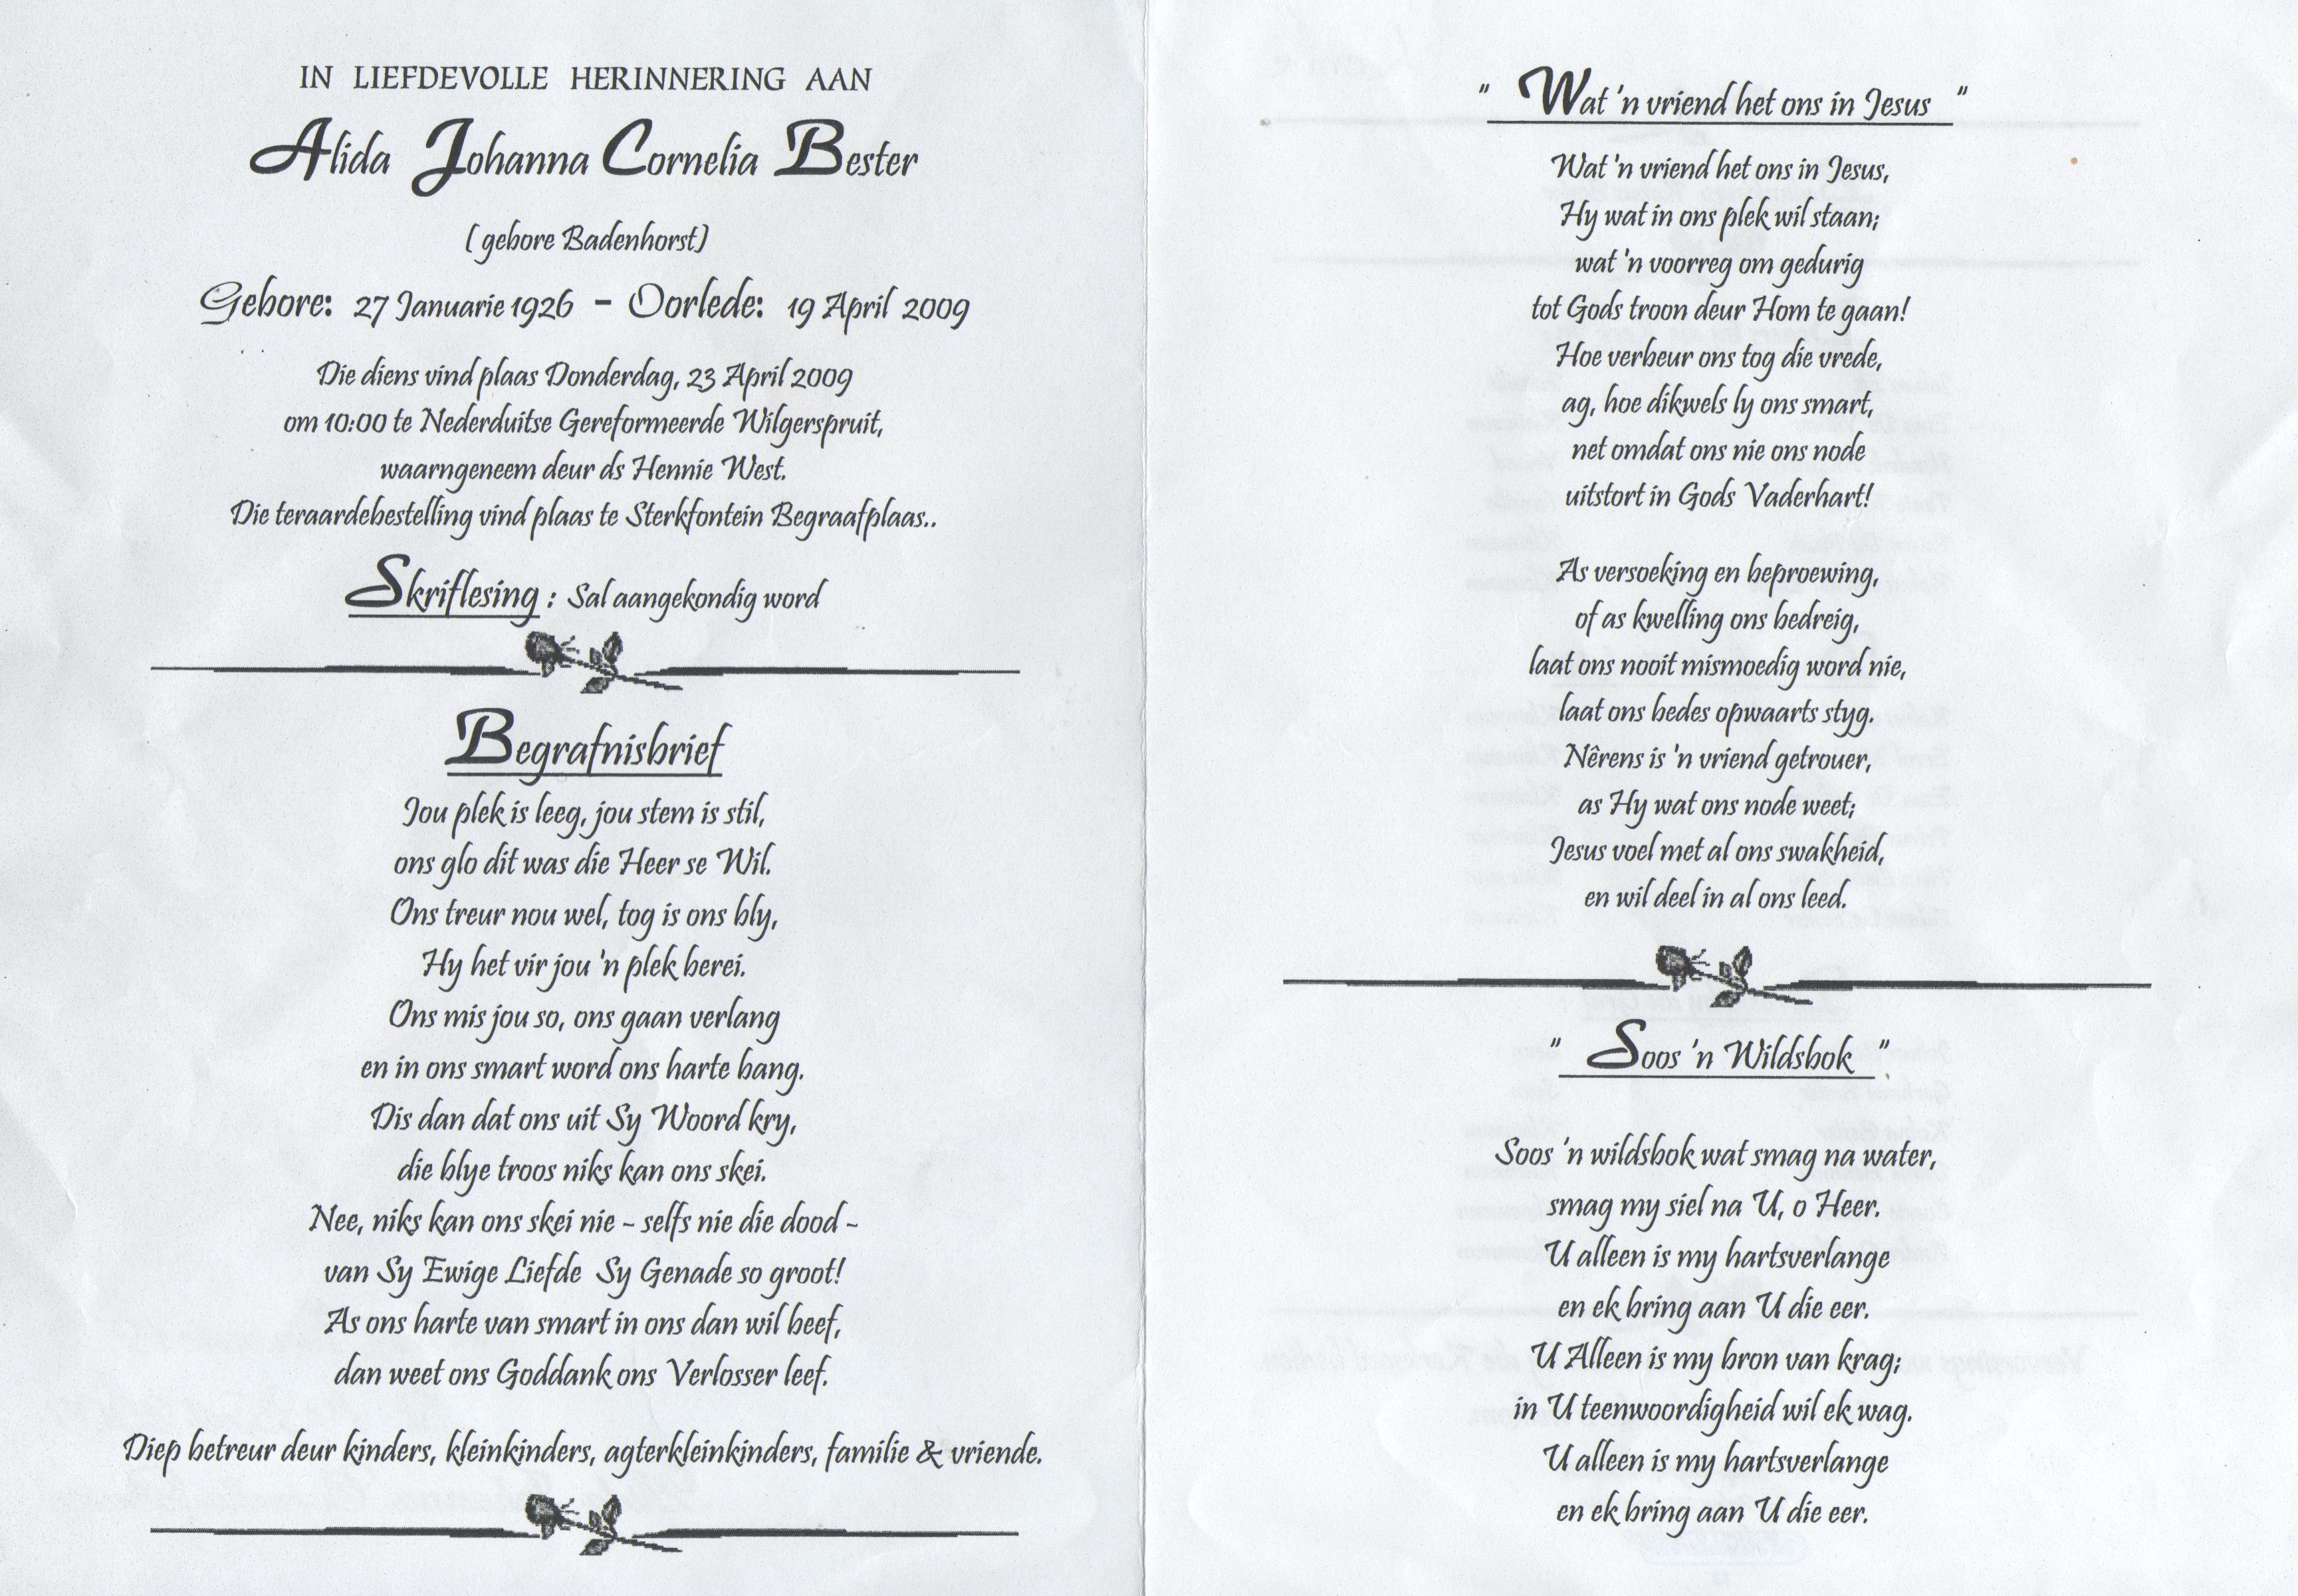 IN LIEFDEVOLLE HERINNERING AAN
Alida Johanna Cornelia Bester
( gebore Badenhorst)
Gebore: 27 Januarie 1926 – Oorlede: 19 April 2009
Die diens vind plaas Donderdag, 23 April 2009
om 10:00 te Nederduitse Gereformeerde Wilgerspruit,
waarngeneem deur ds Hennie West.
Die teraardebestelling vind plaas te Sterkfontein Begraafplaas..
Skriflesing : Sal aangekondig word
Begrafnisbrief
Jou plek is leeg, jou stem is stil,
ons glo dit was die Heer se Wil.
Ons treur nou wel, tog is ons bly,
Hy het vir jou 'n plek berei.
Ons mis jou so, ons gaan verlang
en in ons smart word ons harte bang.
Dis dan dat ons uit Sy Woord kry,
die blye troos niks kan ons skei.
Nee, niks kan ons skei nie ~ selfs nie die dood ~
van Sy Ewige Liefde Sy Genade so groot!
As ons harte van smart in ons dan wil beef,
dan weet ons Goddank ons Verlosser leef.
Diep betreur deur kinders, kleinkinders, agterkleinkinders, familie & vriende.
" Wat 'n vriend het ons in Jesus "
Wat 'n vriend het ons in Jesus,
Hy wat in ons plek wil staan;
wat 'n voorreg om gedurig
tot Gods troon deur Hom te gaan!
Hoe verbeur ons tog die vrede,
ag, hoe dikwels ly ons smart,
net omdat ons nie ons node
uitstort in Gods Vaderhart!
As versoeking en beproewing,
of as kwelling ons bedreig,
laat ons nooit mismoedig word nie,
laat ons bedes opwaarts styg.
Nêrens is 'n vriend getrouer,
as Hy wat ons node weet;
Jesus voel met al ons swakheid,
en wil deel in al ons leed.
" Soos 'n Wildsbok "
Soos 'n wildsbok wat smag na water,
smag my siel na U, o Heer.
U alleen is my hartsverlange
en ek bring aan U die eer.
U Alleen is my bron van krag;
in U teenwoordigheid wil ek wag.
U alleen is my hartsverlange
en ek bring aan U die eer.